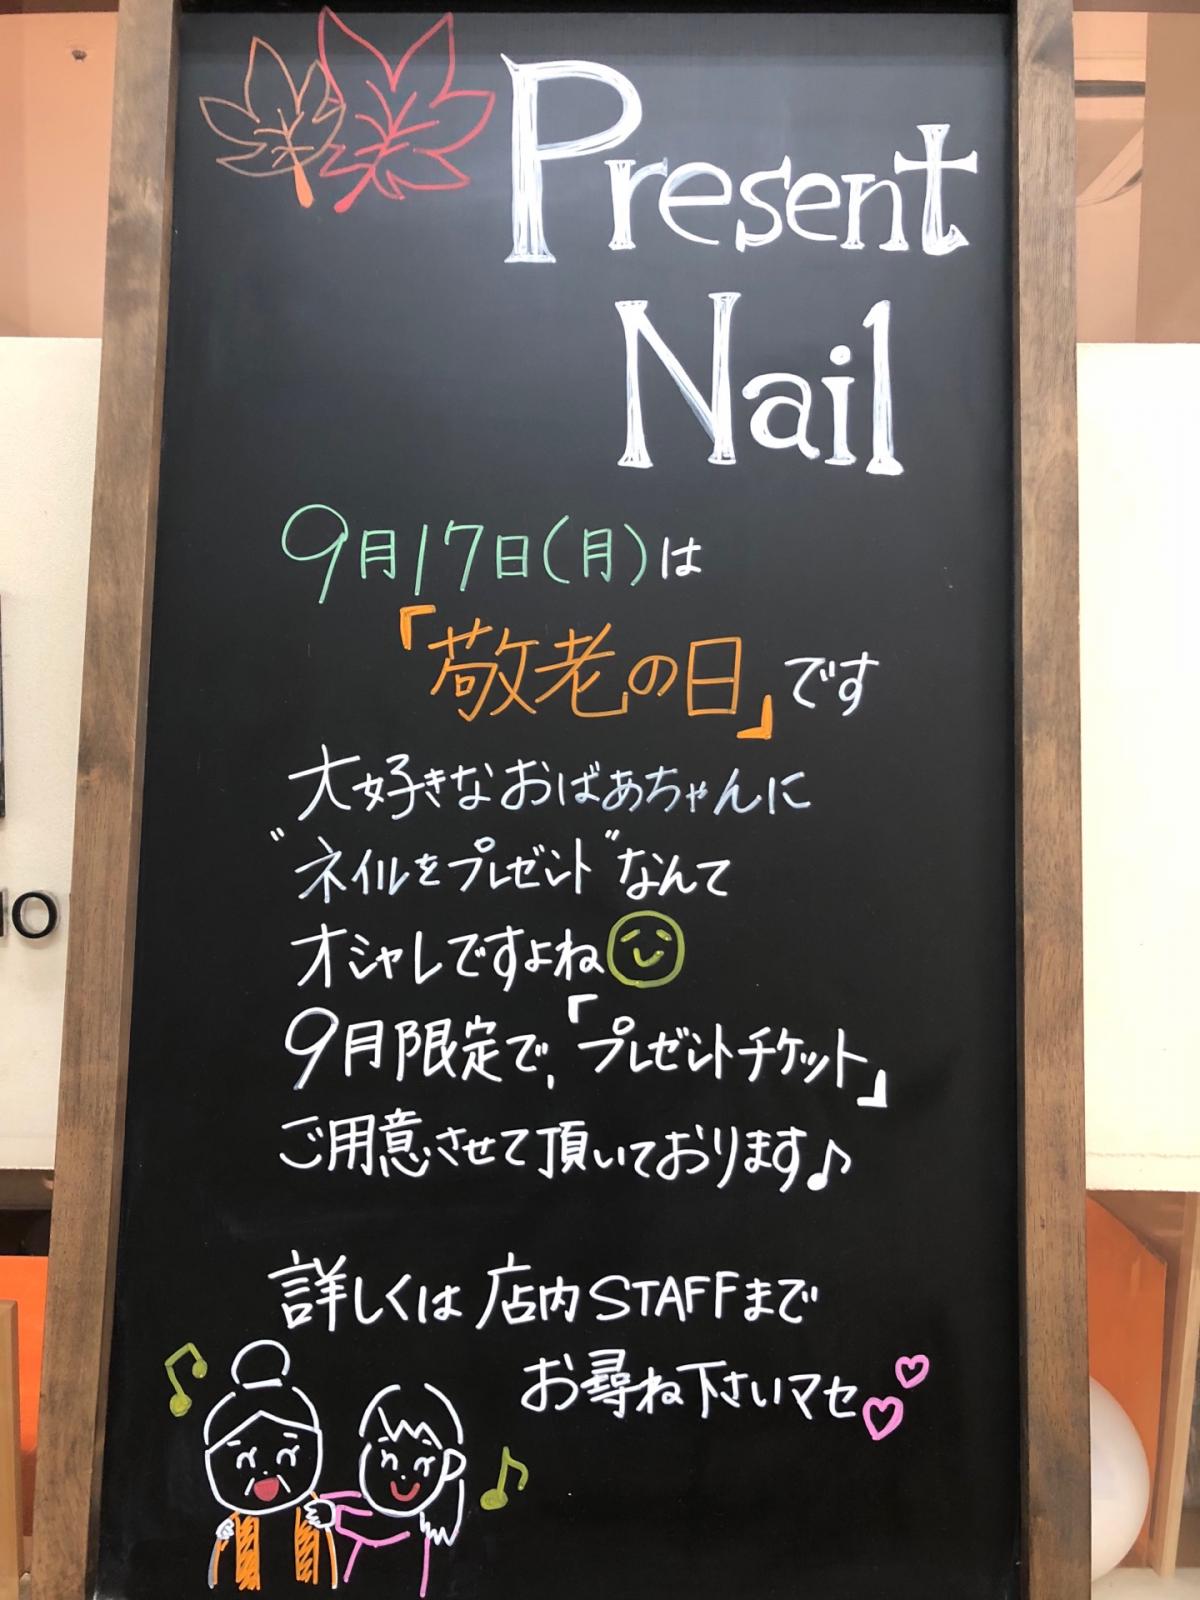 Present
Nail
9月17日(月)は
「敬老の日」です
大好きなおばあちゃんに
"ネイルをプレゼント"なんて
オシャレですよね
9月限定で、「プレゼントチケット」
ご用意させて頂いております♪
詳しくは店内STAFFまで
お尋ね下さいマセ